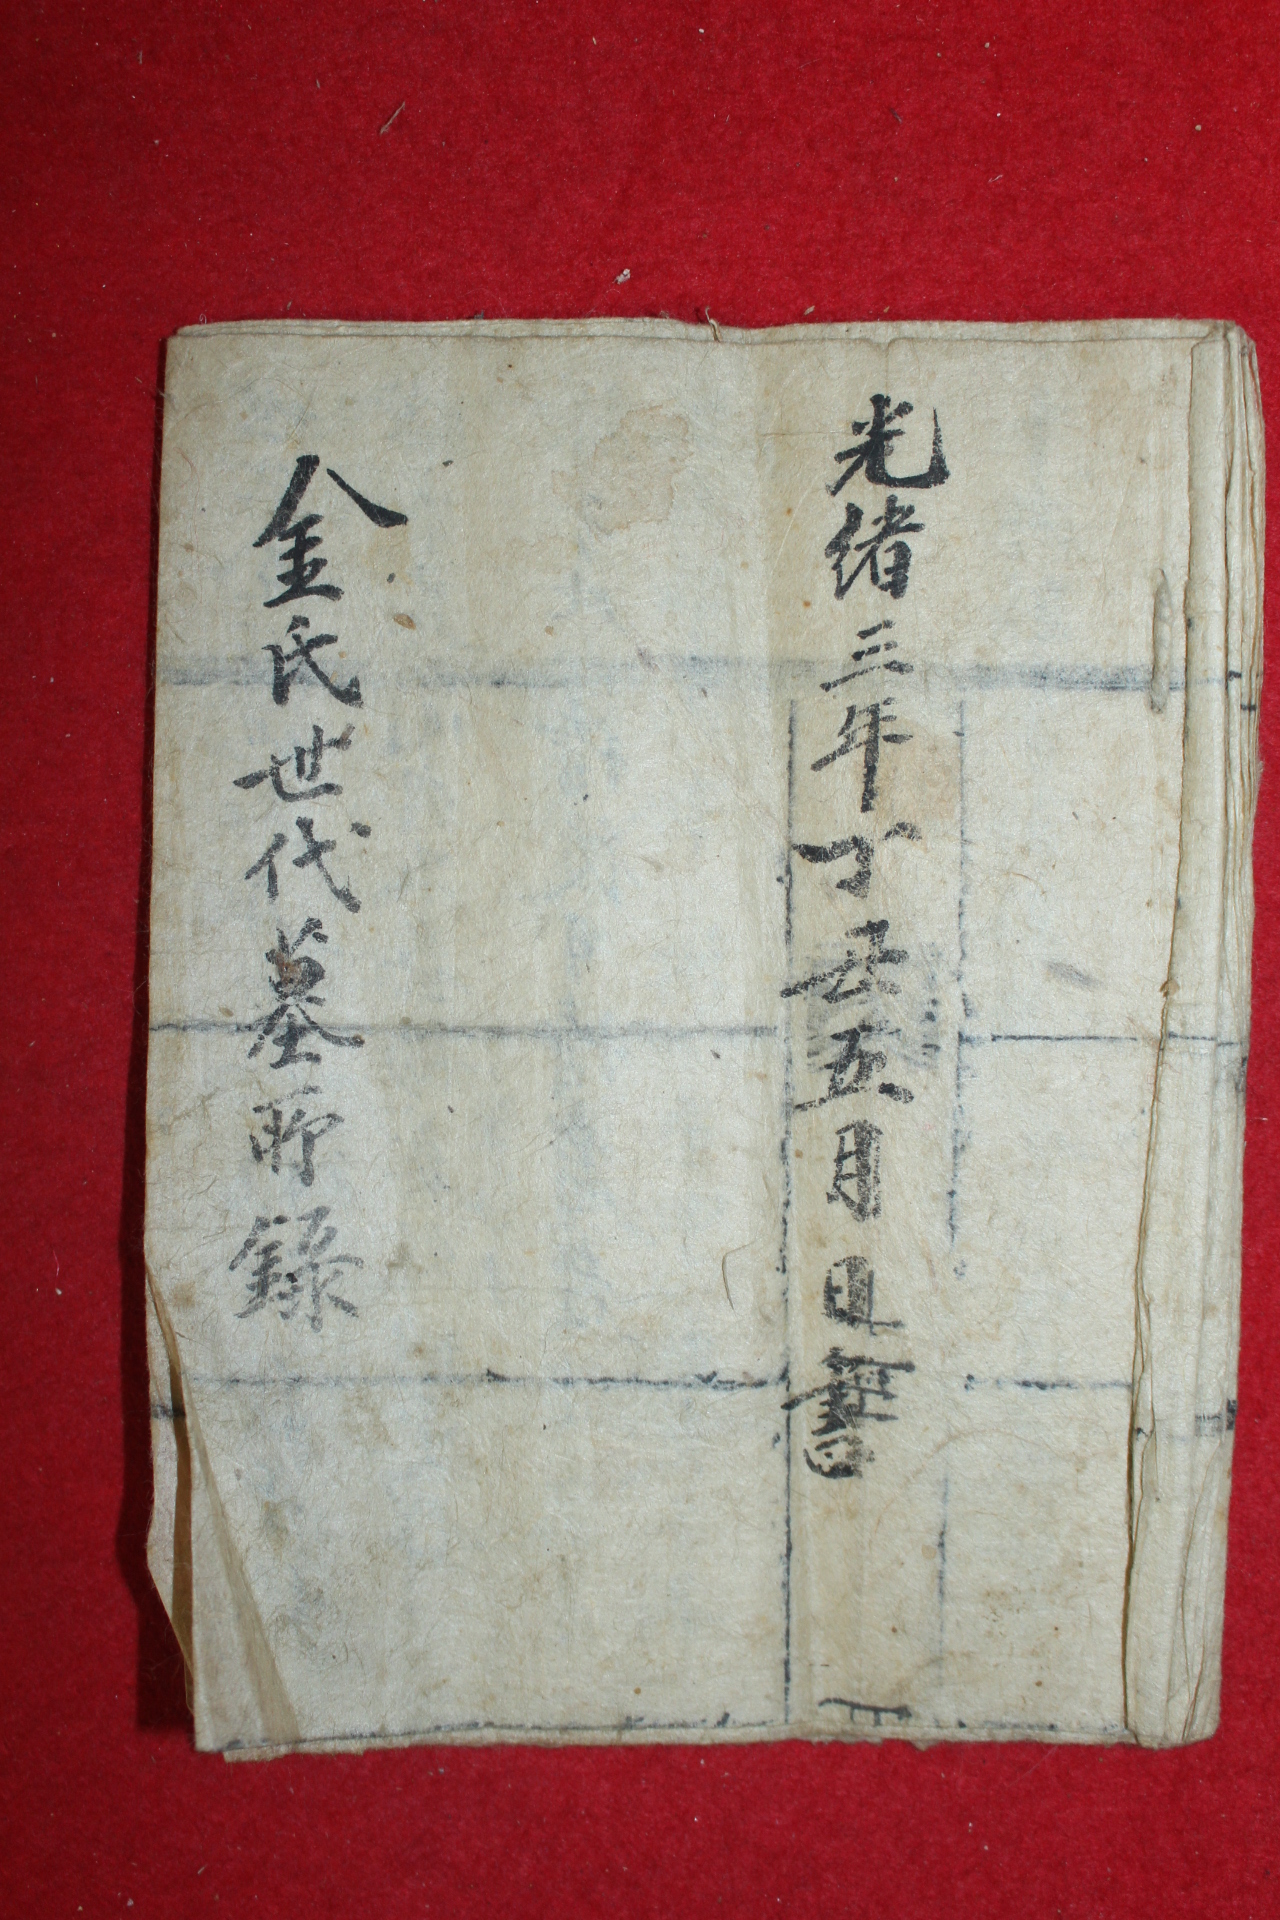 光緖三年丁丑五月日書
金氏世代墓所錄